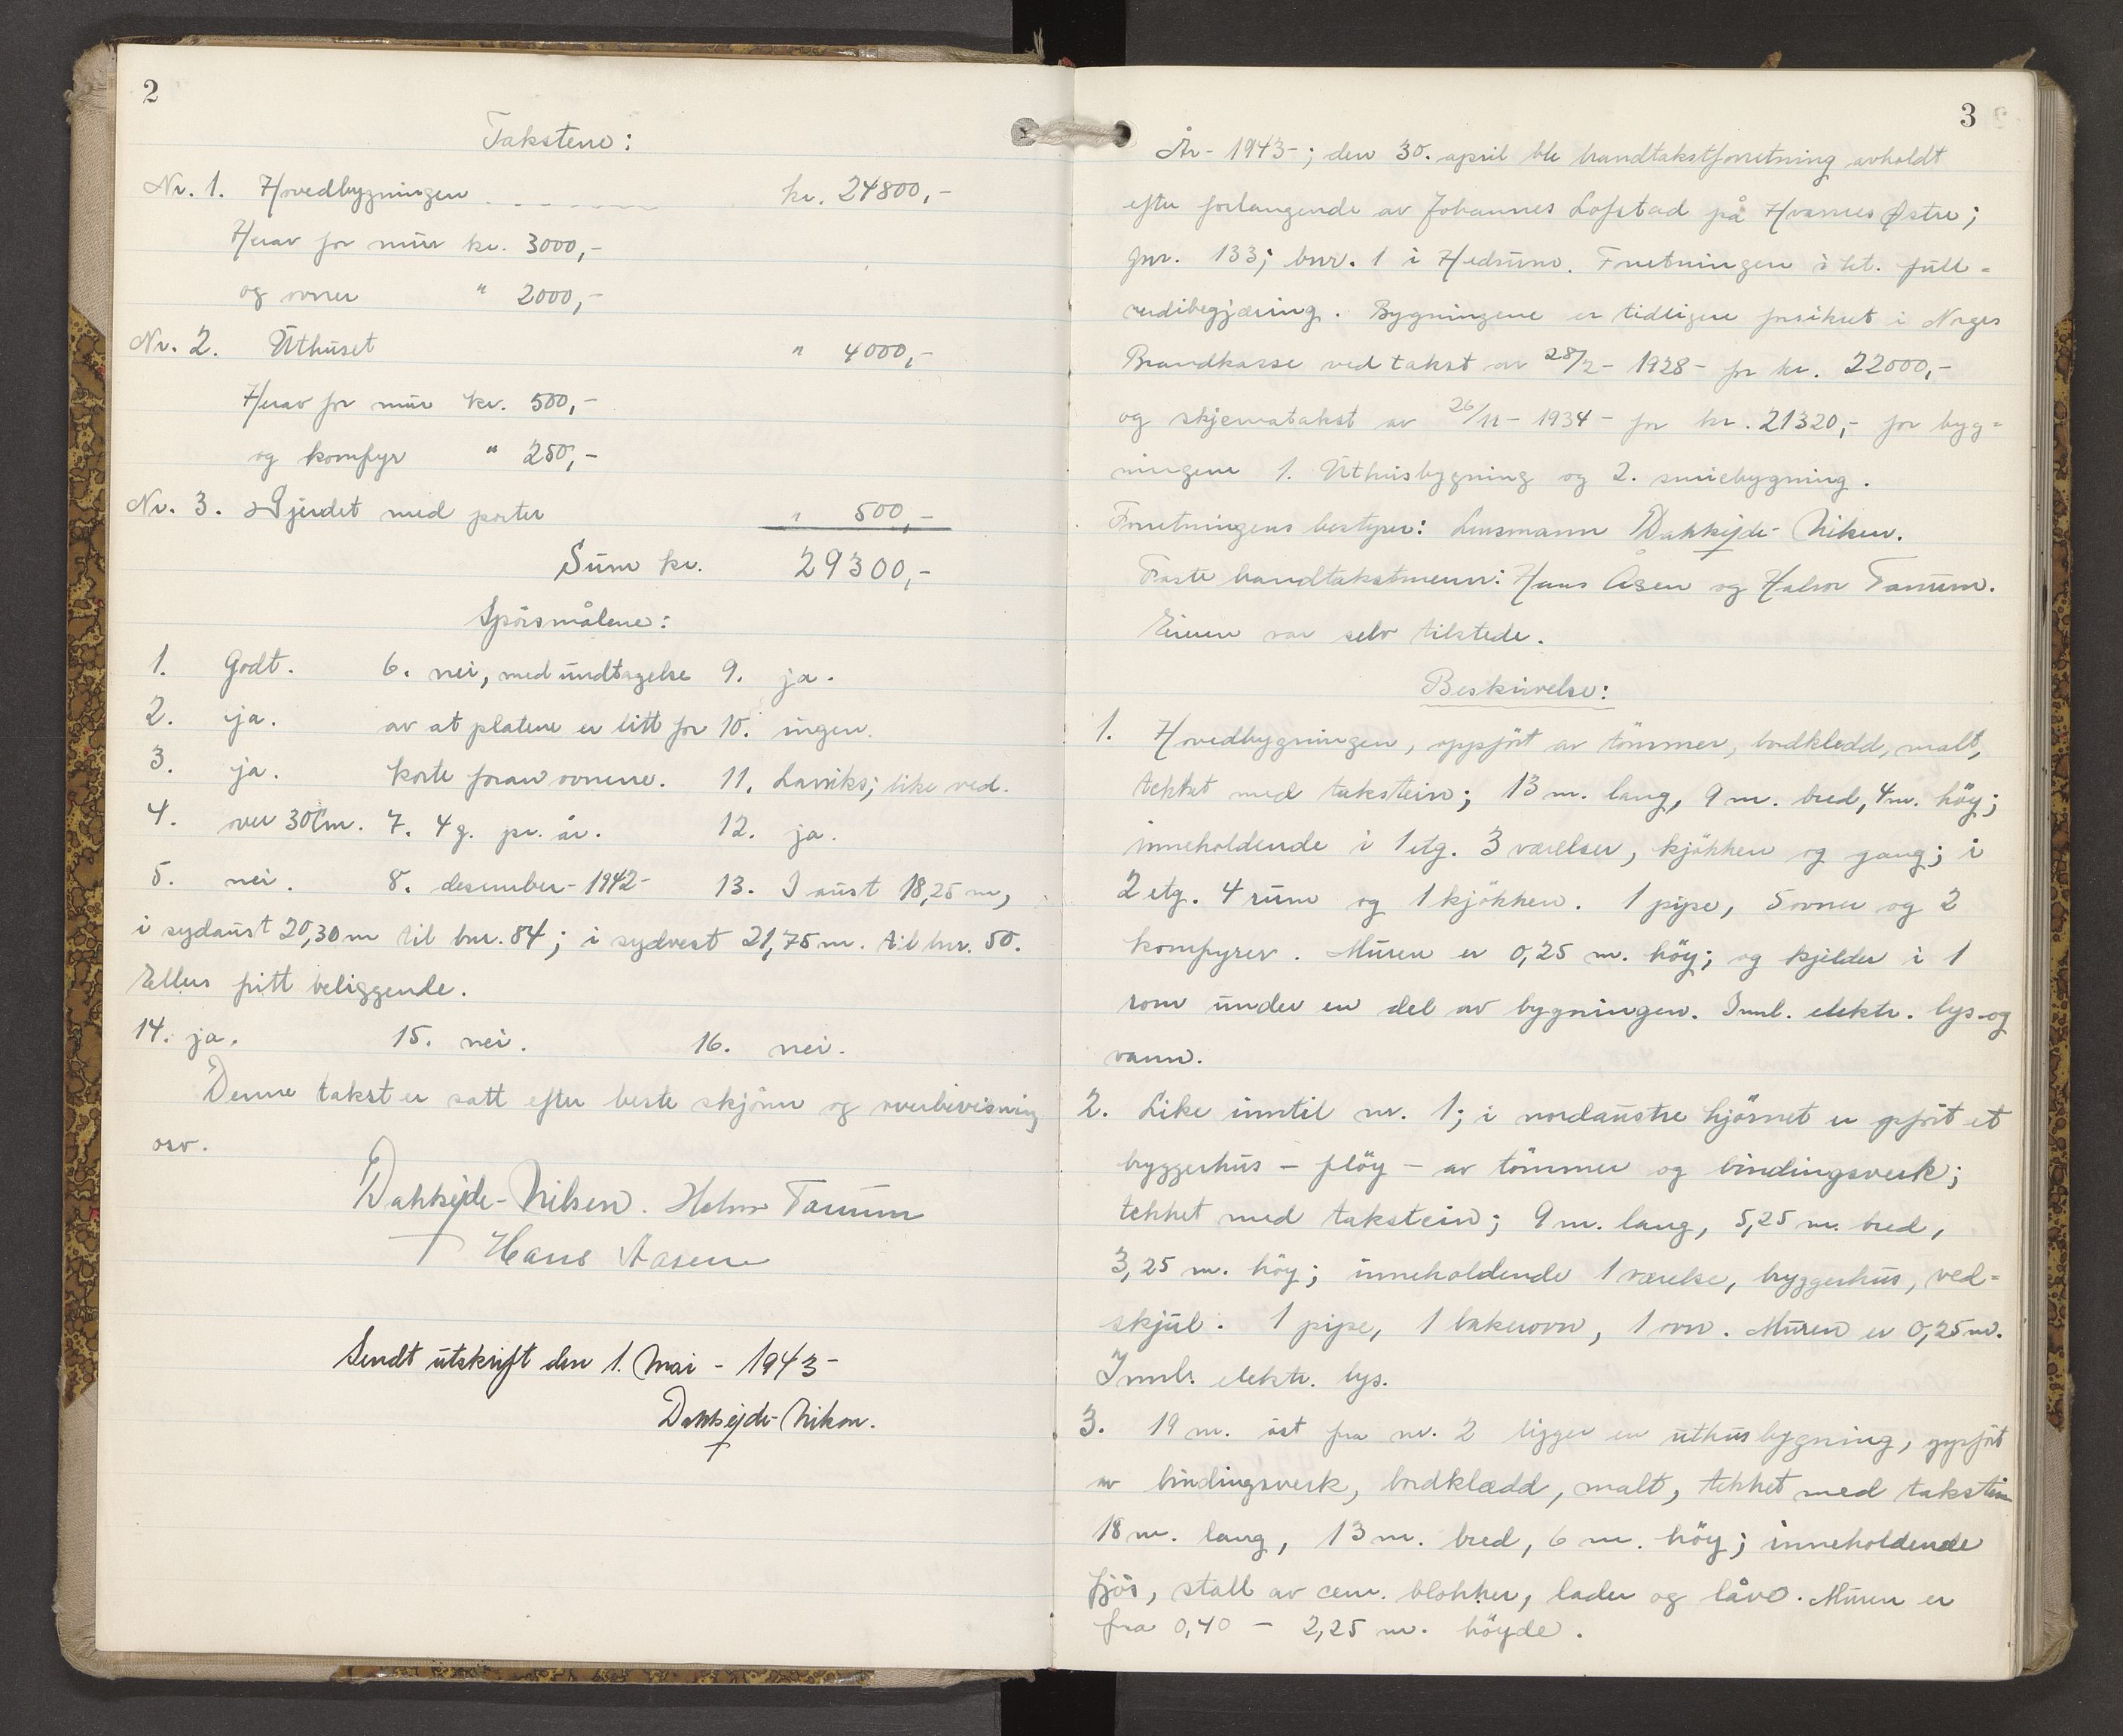 2
Takstene:
Nr. 1. Hovedbygningen kr. 24800,-
Herav for mur kr. 3000,-
og ovner " 2000,-
Nr. 2. Uthuset " 4000,-
Herav for mur kr. 500,-
og komfyr " 250,-
Nr. 3. Gjerdet med porter " 500,-
Sum kr. 29300,-
Spörsmålene:
1. Godt. 6. nei, med undtagelse 9. ja.
2. ja. av at platene er litt for 10. ingen.
3. ja. korte foran ovnene. 11. Larviks; like ved.
4. over 30 cm. 7. 4 g. pr. år. 12. ja.
5. nei. 8. desember - 1942 - 13. I aust 18,25 m,
i sydaust 20,30 m til bnr. 84; i sydvest 21,75 m. til bnr. 50.
Ellers fritt beliggende.
14. ja. 15. nei. 16. nei.
Denne takst er satt efter beste skjönn og overbevisning
osv.
Dahkejde-Nilsen. Halvor Tanum
Hans Aasen
Sendt utskrift den 1. Mai - 1943 -
Dahkejde-Nilsen.
3
År - 1943 -; den 30. april ble brandtakstforretning avholdt
efter forlangende av Johannes Lofstad på Østre;
gnr. 133; bnr. 1 i Hedrum. Forretningen i ht. full-
verdibegjæring. Bygningene er tidligere forsikret i Norges
Brandkasse ved takst av 28/2 - 1928 - for kr. 22000,-
og skjematakst av 26/11 - 1934 - for kr. 21320,- for byg-
ningene 1. Uthusbygning og 2. smiebygning.
Forretningens bestyrer: Lensmann Dahkejde-Nilsen.
Faste brandtakstmenn: Hans Åsen og Halvor Tanum.
Eieren var selv tilstede.
Beskrivelse:
1. Hovedbygningen, oppfört av tömmer, bordkledd, malt,
tekket med takstein; 13 m. lang, 9 m. bred, 4 m. höy;
inneholdende i 1 etg. 3 værelser, kjökken og gang; i
2 etg. 4 rum og 1 kjökken. 1 pipe, 5 ovner og 2
komfyrer. Muren er 0,25 m. höy; og kjelder i 1
rom under en del av bygningen. Innl. elektr. lys og
vann.
2. Like inntil nr. 1; i nordaustre hjörnet er opfört et
bryggerhus - flöy - av tömmer og bindingsverk;
tekket med takstein; 9 m. lang, 5,25 m. bred,
3,25 m. höy; inneholdende 1 værelse, bryggerhus, ved-
skjul. 1 pipe, 1 bakerovn, 1 ovn. Muren er 0,25 m.
Innl. elektr. lys.
3. 19 m. öst fra nr. 2 ligger en uthusbygning, oppfört
av bindingsverk, bordklædd, malt, tekket med takstein
18 m. lang, 13 m. bred, 6 m. höy; inneholdende
fjös, stall av cem. blokker, lader og låve. Muren er
fra 0,40 - 2,25 m. höyde.